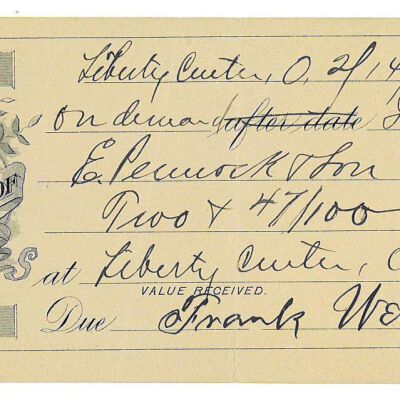 Liberty Center, O. 2/14
on demand after date
E. Pennock & Son
OF
Two & 47/100
at Liberty Center, O
VALUE RECEIVED.
Due Frank We